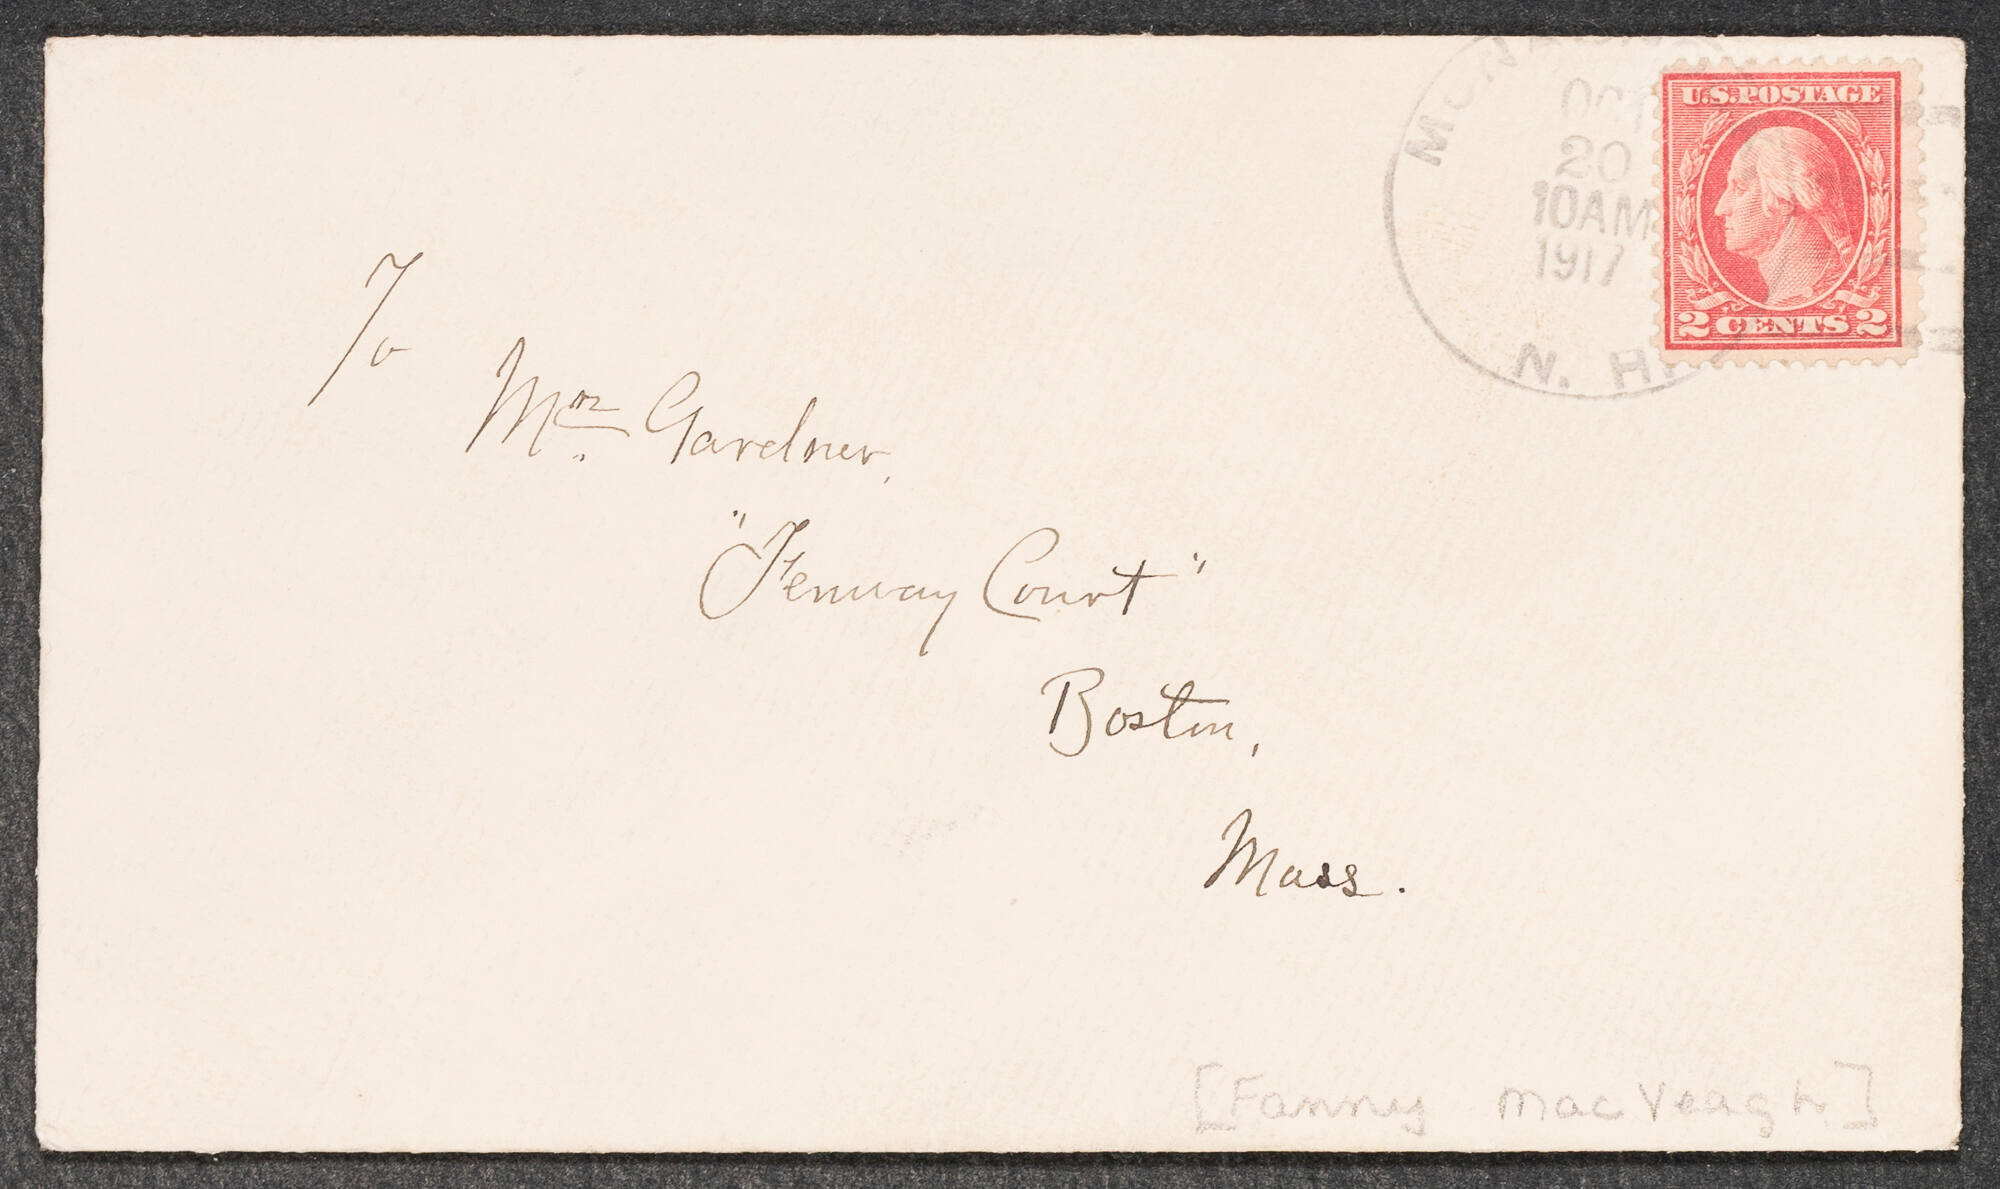 OCT
20
10AM
1917
N. H.
U.S. POSTAGE
2 CENTS 2
To
Mrs. Gardner,
"Fenway Court"
Boston,
Mass.
[Fanny MacVeagh]